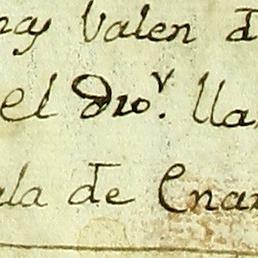 nas valen d
el dro^r. lla
ala de Enar